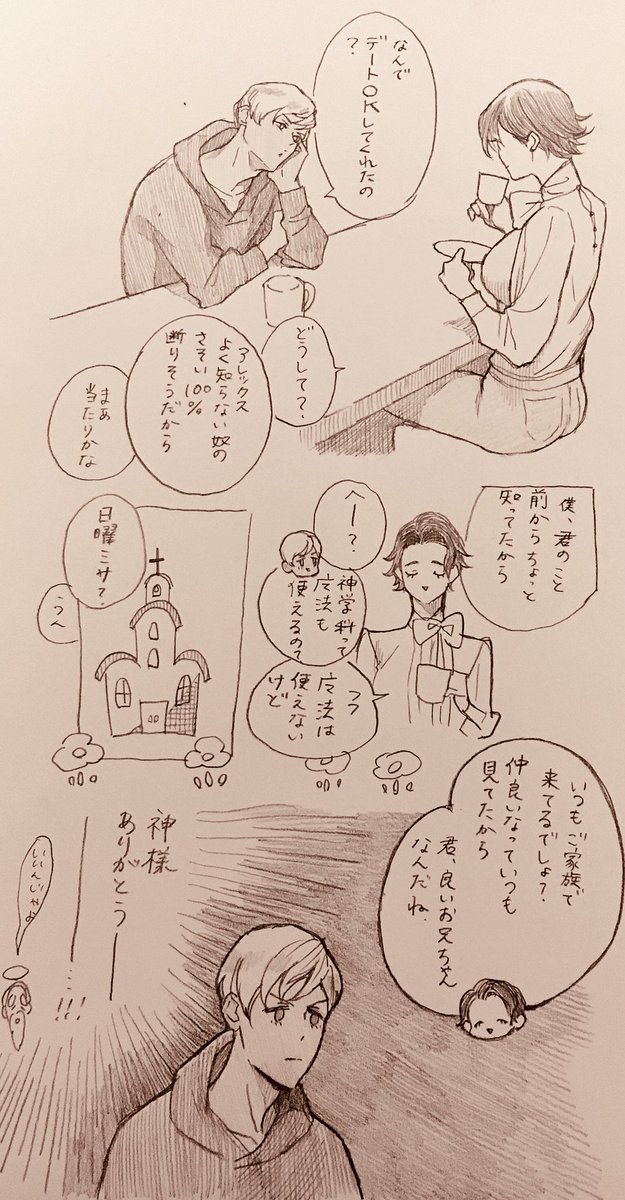 なんで
デートOKしてくれたの
？
どうして？
アレックス
よく知らない奴の
さそい100%
断りそうだから
まあ
当たりかな
僕、君のこと
前からちょっと
知ってたから
へー？
神学科って
魔法も
使えるので
フフ
魔法は
使えない
けど
日曜ミサ？
うん
いつもご家族で
来てるでしょ？
仲良いなっていつも
見てたから
君、良いお兄ちゃん
なんだね
神様
ありがとう――
……!!!
いいんじゃよ